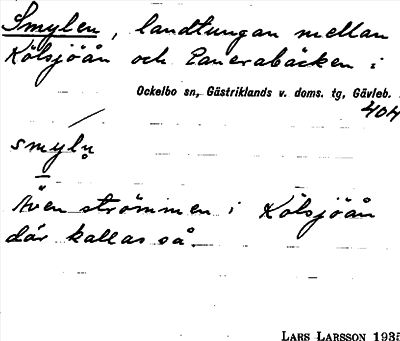 Smylen, landtungan mellan
Kölsjöån och Lanerabäcken i
Ockelbo sn, Gästriklands v. doms. tg, Gävleb.
404
smyln̥
Även strömmen i Kölsjöån
där kallas så.
LARS LARSSON 1935